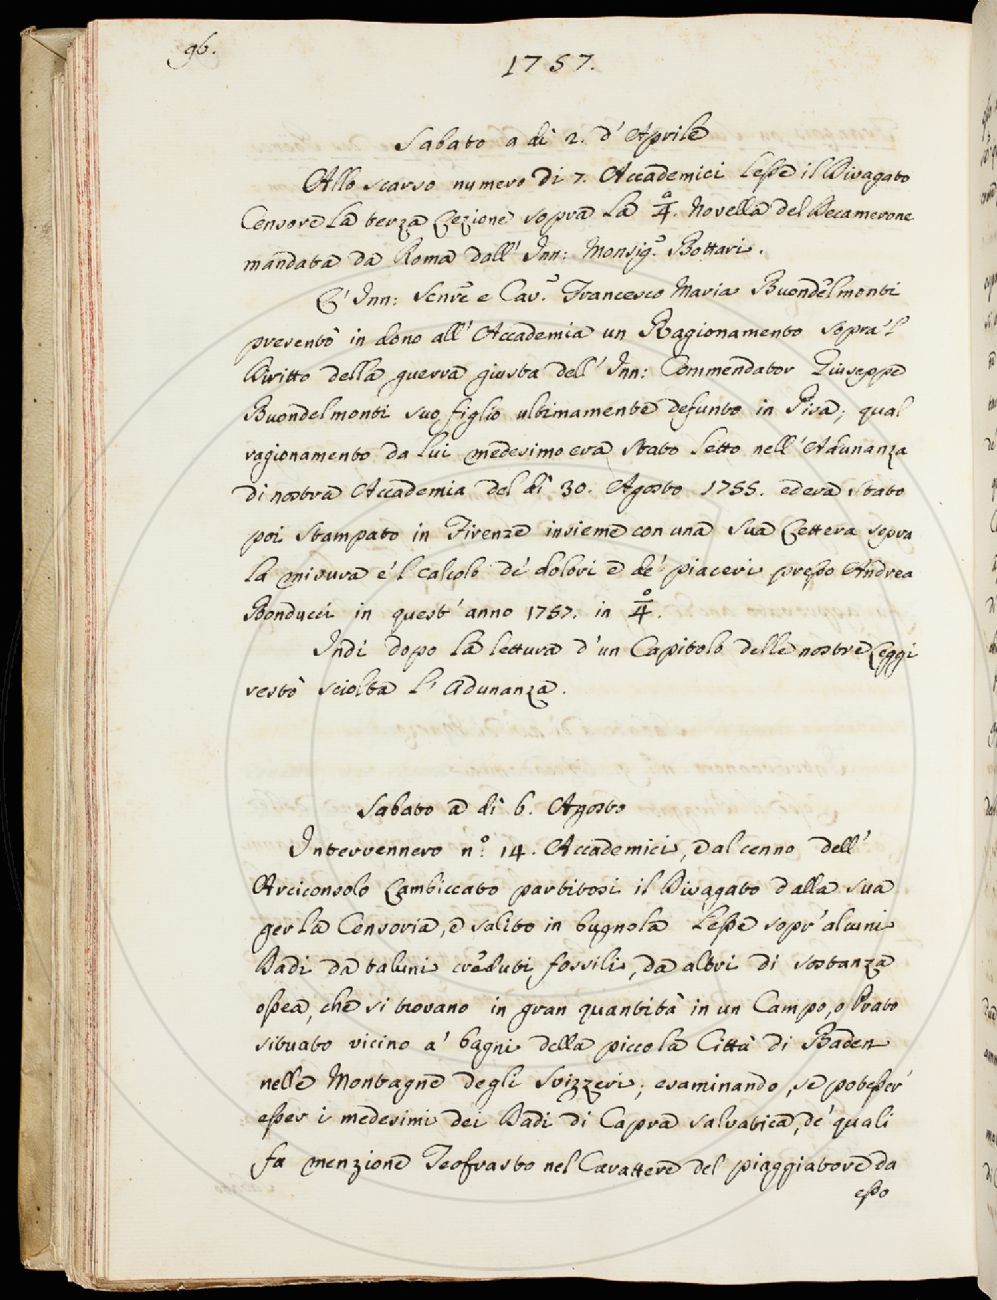 96.
1757.
Sabato a di 2. d'Aprile
Allo scarso numero di 7. Accademici lesse il Divagato
Censore la terza Lezione sopra la 4.ª Novella del Decamerone
mandata da Roma dall'Inn: Monsig.r Bottari.
L'Inn: Senre e Cav.r Francesco Maria Buondelmonti
presentò in dono all'Accademia un Ragionamento sopra'l
Diritto della guerra giusta dell'Inn: Commendator Giuseppe
Buondelmonti suo figlio ultimamente defunto in Pisa; qual
ragionamento da lui medesimo era stato letto nell'Adunanza
di nostra Accademia del dì 30. Agosto 1755. ed era stato
poi stampato in Firenze insieme con una sua Lettera sopra
la misura e'l calcolo de' dolori e de' piaceri presso Andrea
Bonducci in quest'anno 1757. in 4.º
Indi dopo la lettura d'un Capitolo delle nostre Leggi
restò sciolta l'Adunanza.
Sabato a dì 6. Agosto
Intervennero n.º 14. Accademici, e al cenno dell'
Arciconsolo Lambiccato partitosi il Divagato dalla sua
gerla Censoria, e salito in bugnola lesse sopr'alcuni
Dadi da taluni creduti fossili, da altri di sostanza
ossea, che si trovano in gran quantità in un Campo, o Prato
situato vicino a' bagni della piccola Città di Baden
nelle Montagne degli Svizzeri; esaminando, se potesser'
esser i medesimi dei Dadi di Capra salvatica, de' quali
fa menzione Teofrasto nel Carattere del piaggiatore da
esso